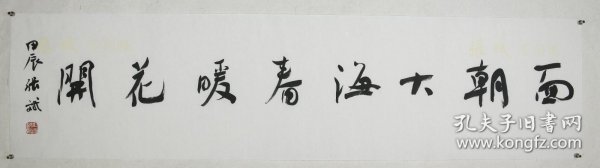 面朝大海春暖花開
甲辰 張斌
孔夫子旧書网
www.kongfz.com